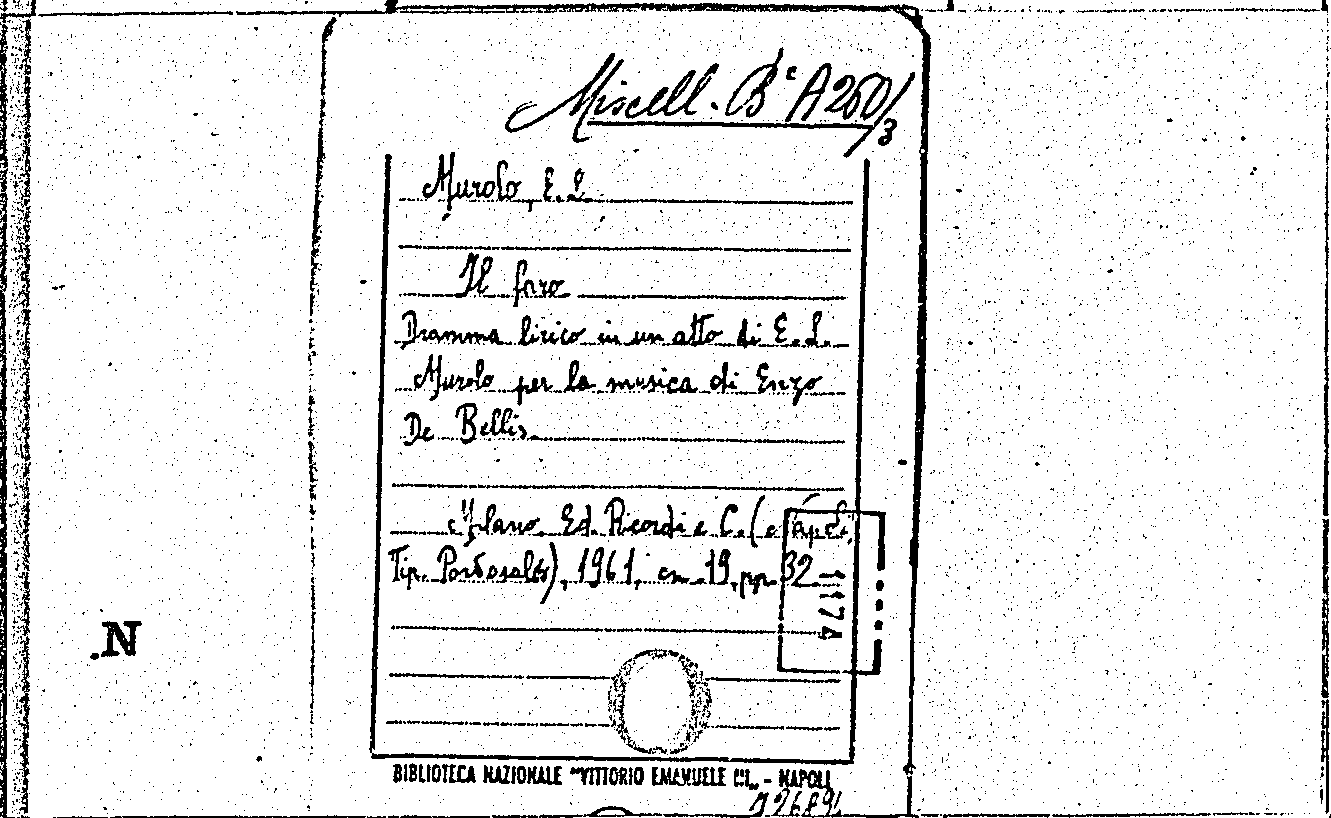 Miscell. Bᵉ A 260/3
Murolo, E. L.
Il faro
Dramma lirico in un atto di E. L.
Murolo per la musica di Enzo
De Bellis.
Milano. Ed. Ricordi e C. (Napoli,
Tip. Portosalvo), 1961, cm 19, pp. 32
1174
N.
BIBLIOTECA NAZIONALE "VITTORIO EMANUELE III„ - NAPOLI